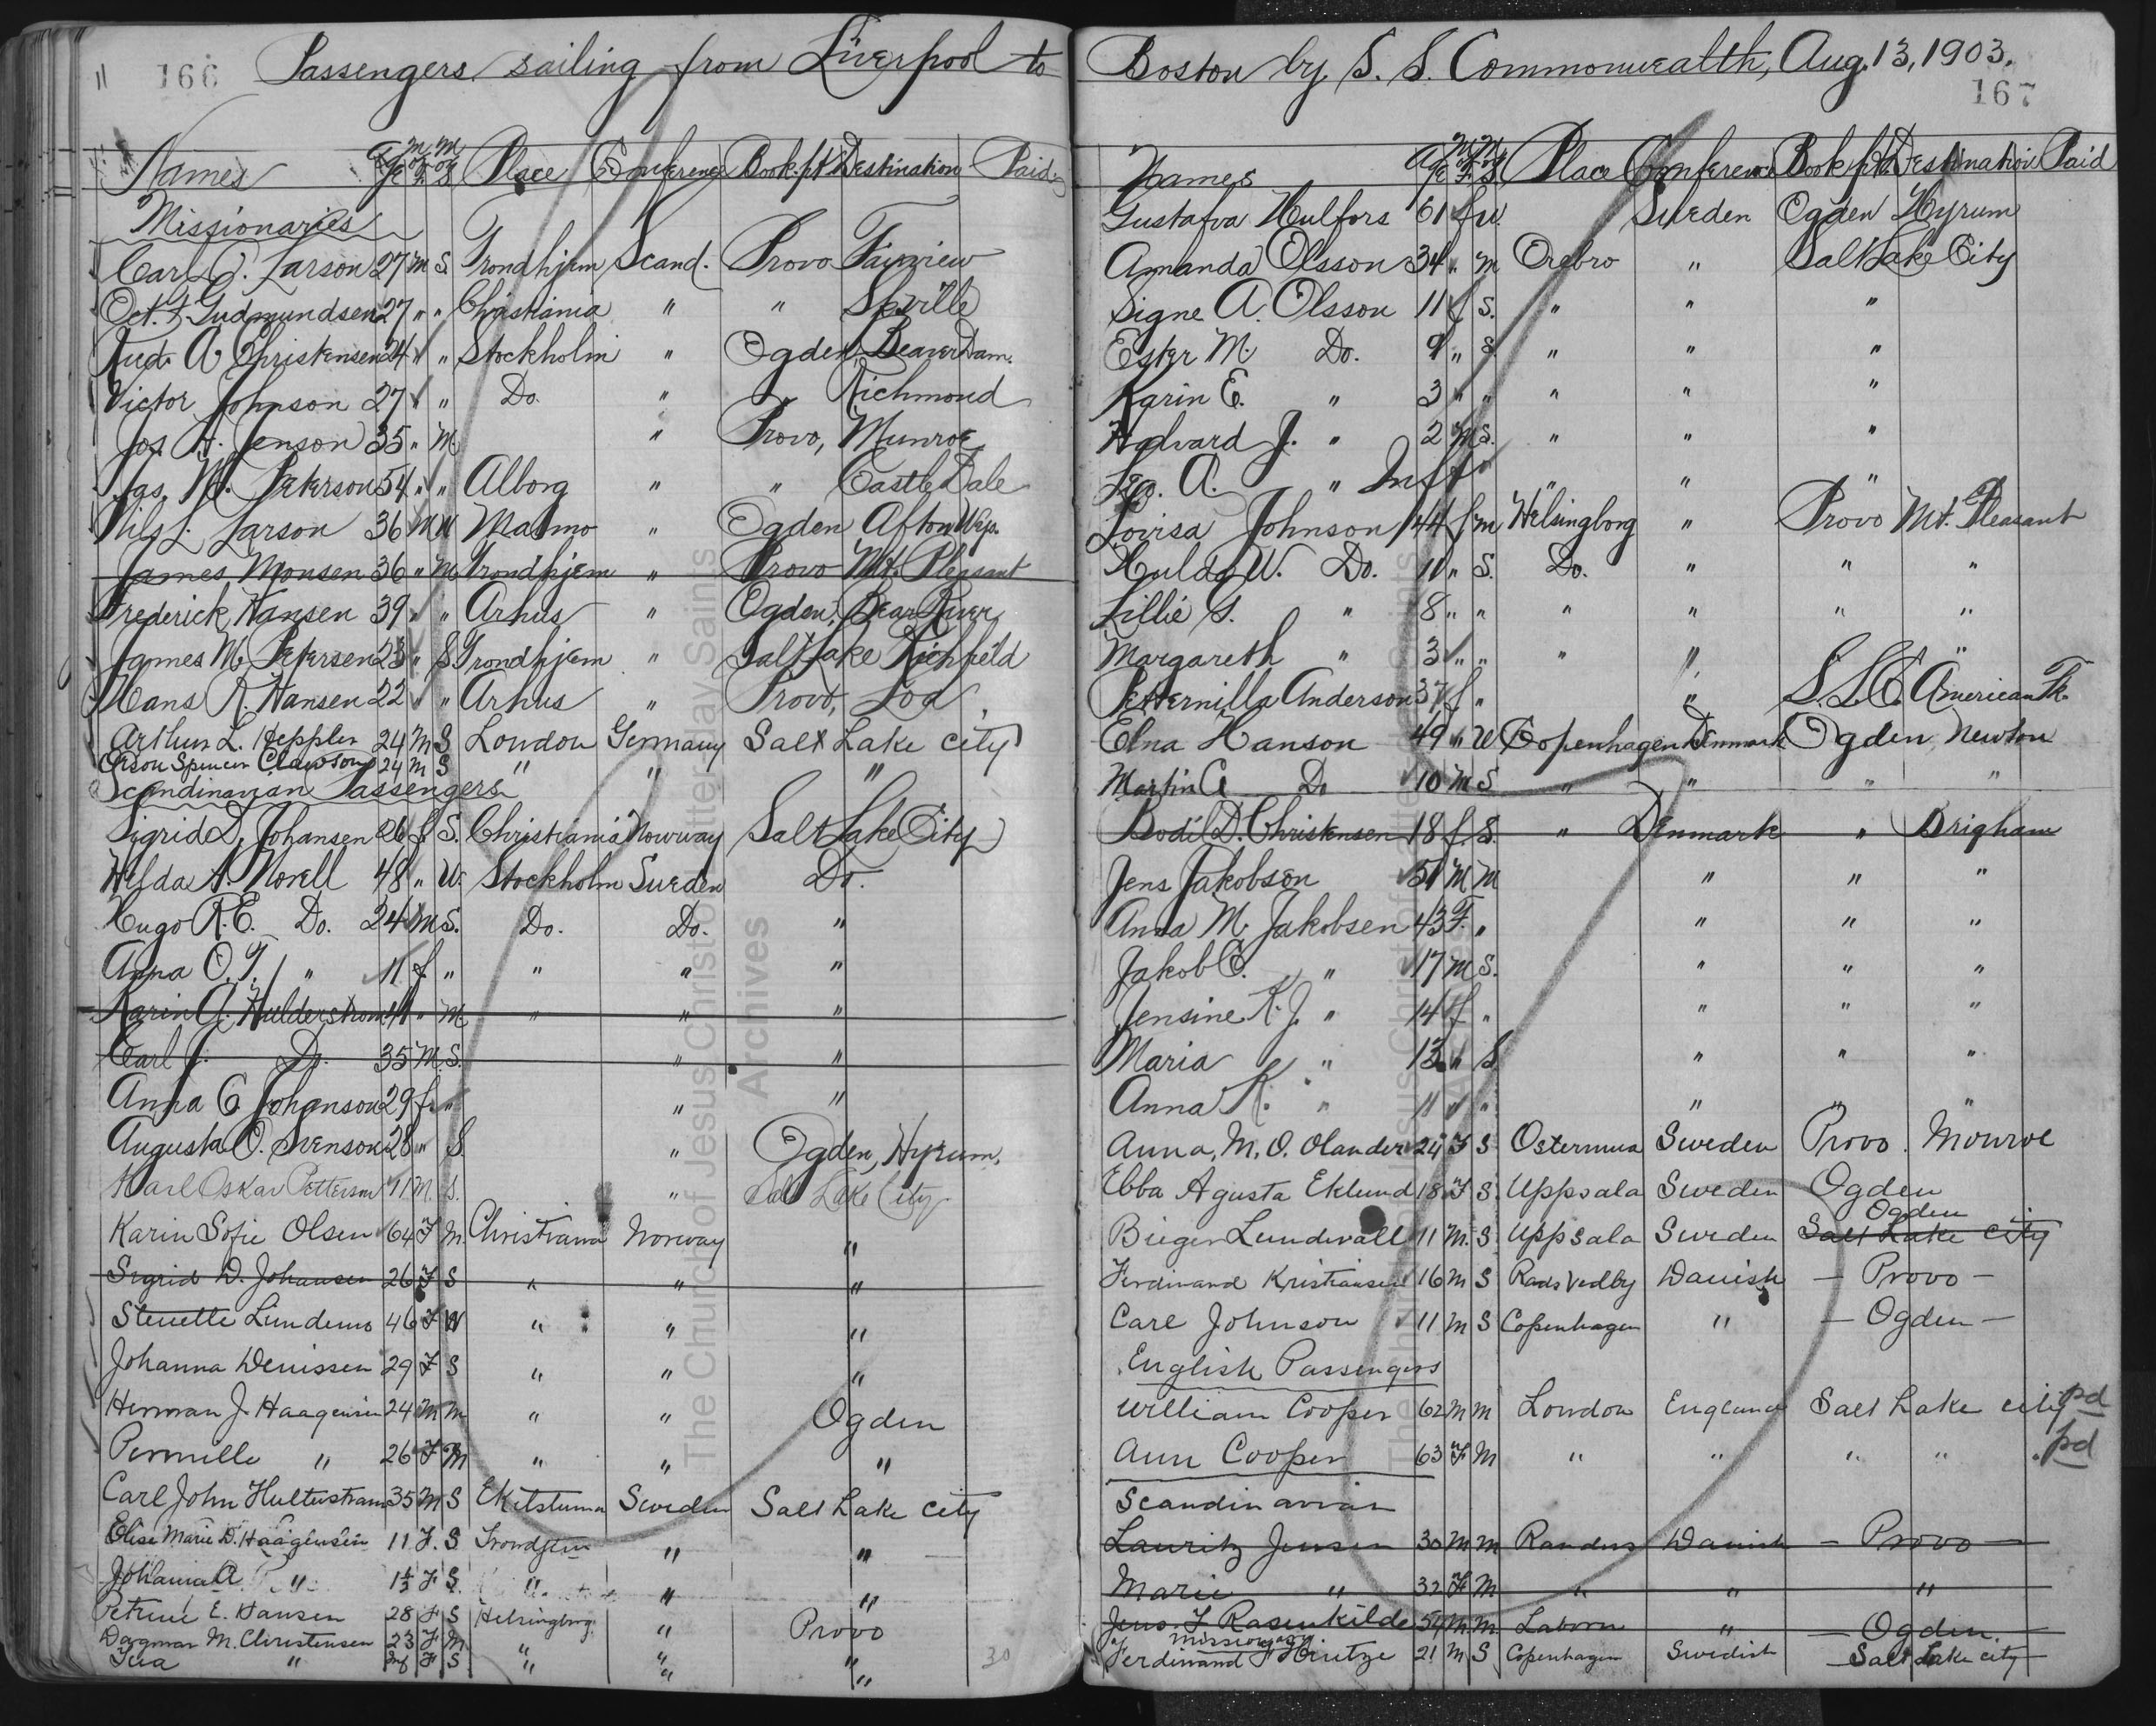 166 Passengers sailing from Liverpool to
Names Age M or F M or S Place Conference Book.pt Destination Paid
Missionaries
Carl J. Larson 27 M S. Trondhjem Scand. Provo Fairview
Oct. F. Gudmundsen 27 " " Christiania " " Spville
Aud. A. Christensen 24 " " Stockholm " Ogden, Beaver Dam.
Victor Johnson 27 " " Do. " " Richmond
Jos. A. Jenson 35 " M " Provo, Munroe
Jas. M. Peterson 54 " " Alborg " " Castle Dale
Nils L. Larson 36 M W Malmo " Ogden Afton Wyo.
James Monsen 36 " M Trondhjem " Provo Mt. Pleasant
Frederick Hansen 39 " " Arhus " Ogden, Bear River
James M. Petersen 23 " S Trondhjem " Salt Lake Richfield
Hans R. Hansen 22 " " Arhus " Provo, Loa
Arthur L. Heppler 24 M S London Germany Salt Lake City
Orson Spencer Clawson 24 M S " " "
Scandinavian Passengers
Sigrid D. Johansen 26 f S. Christiania Norway Salt Lake City
Hylda A. Norell 48 " W. Stockholm Sweden Do.
Hugo R. E. Do. 24 M S. Do. Do. "
Anna O. T. " 11 f " " " "
Karin A. Hulderstrom 41 " M " " "
Carl J. Do. 35 M S. " "
Anna C. Johanson 29 f " " "
Augusta O. Svenson 28 " S " Ogden, Hyrum.
Karl Oskar Petterson 11 M. S. " Salt Lake City
Karin Sofie Olsen 64 F M. Christiania Norway "
Sigrid D. Johansen 26 F S " " "
Stenette Lindemo 46 F W " " "
Johanna Denissen 29 F S " " "
Herman J. Haagensen 24 M M " " Ogden
Pernille " 26 F M " " "
Carl John Hultustram 35 M S Ekilstuna Sweden Salt Lake City
Elise Marie D. Haagensen 11 F. S. Trondjem " "
Johanna A " F S " " "
Petrine E. Hansen 28 F S Helsingborg " Provo
Dagmar M. Christensen 23 F M " " "
" F S " " "
30
Boston by S. S. Commonwealth, Aug. 13, 1903.
167
Names Age M or F M or S Place Conference Book.pt. Destination Paid
Gustafva Hulfors 61 f W. Sweden Ogden Hyrum
Amanda Olsson 34 " M Orebro " Salt Lake City
Signe A. Olsson 11 f S. " " "
Ester M. Do. 9 " S " " "
Karin E. " 3 " " " " "
Halvard J. " 2 M S. " " "
Leo. A. " Inft " " " "
Lovisa Johnson 44 f M Helsingborg " Provo Mt. Pleasant
Hulda W. Do. 11 " S. Do. " " "
Lillie S. " 8 " " " " " "
Margareth " 3 " " " " "
Petternilla Anderson 37 f " " S. L. C. American Fk.
Elna Hanson 49 " W Copenhagen Denmark Ogden, Newton
Martin C Do 10 M S " " " "
Bodil D. Christensen 18 f S. " Denmark " Brigham
Jens Jakobson 51 M M " " "
Anna M. Jakobsen 43 F. " " " "
Jakob C. " 17 M S. " " "
Jensine K. J. " 14 f " " " "
Maria " 13 " S " " "
Anna K. " 11 " " " " "
Anna, M. O. Olander 24 F S Osternua Sweden Provo. Monroe
Ebba Agusta Eklund 18 F S. Uppsala Sweden Ogden
Ogden
Birger Lundevall 11 M. S Uppsala Sweden Salt Lake City
Ferdinand Kristiansen 16 M S Rads Vedby Danish – Provo –
Carl Johnson 11 M S Copenhagen " – Ogden –
English Passengers
William Cooper 62 M M London England Salt Lake city pd
Ann Cooper 63 F M " " " " pd
Scandinavian
Lauritz Jensen 30 M M Randers Danish – Provo –
Marie " 32 F M " " "
Jens. F. Rasenkilde 54 M M Laborn " – Ogden.
missionary.
Ferdinand F Hintze 21 M S Copenhagen Swedish – Salt Lake city –
The Church of Jesus Christ of Latter-day Saints
Archives
The Church of Jesus Christ of Latter-day Saints
Archives